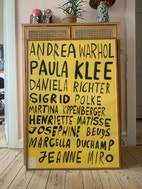 ANDREA WARHOL
PAULA KLEE
DANIELA RICHTER
SIGRID POLKE
MARTINA KIPPENBERGER
HENRIETTE MATISSE
JOSEPHINE BEUYS
MARCELLA DUCHAMP
JEANNE MIRO